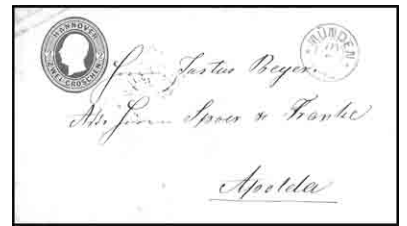 HANNOVER
ZWEI GROSCHEN
MÜNDEN
Herrn Justus Beyer.
Adr. Herren Spoer & Francke
Apolda